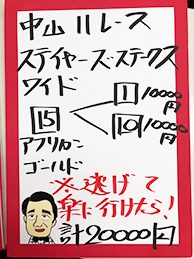 中山11レース
ステイヤーズステークス
ワイド
15
1 10000円
10 10000円
アフリカン
ゴールド
※逃げて
楽に行けたら!
計20000円